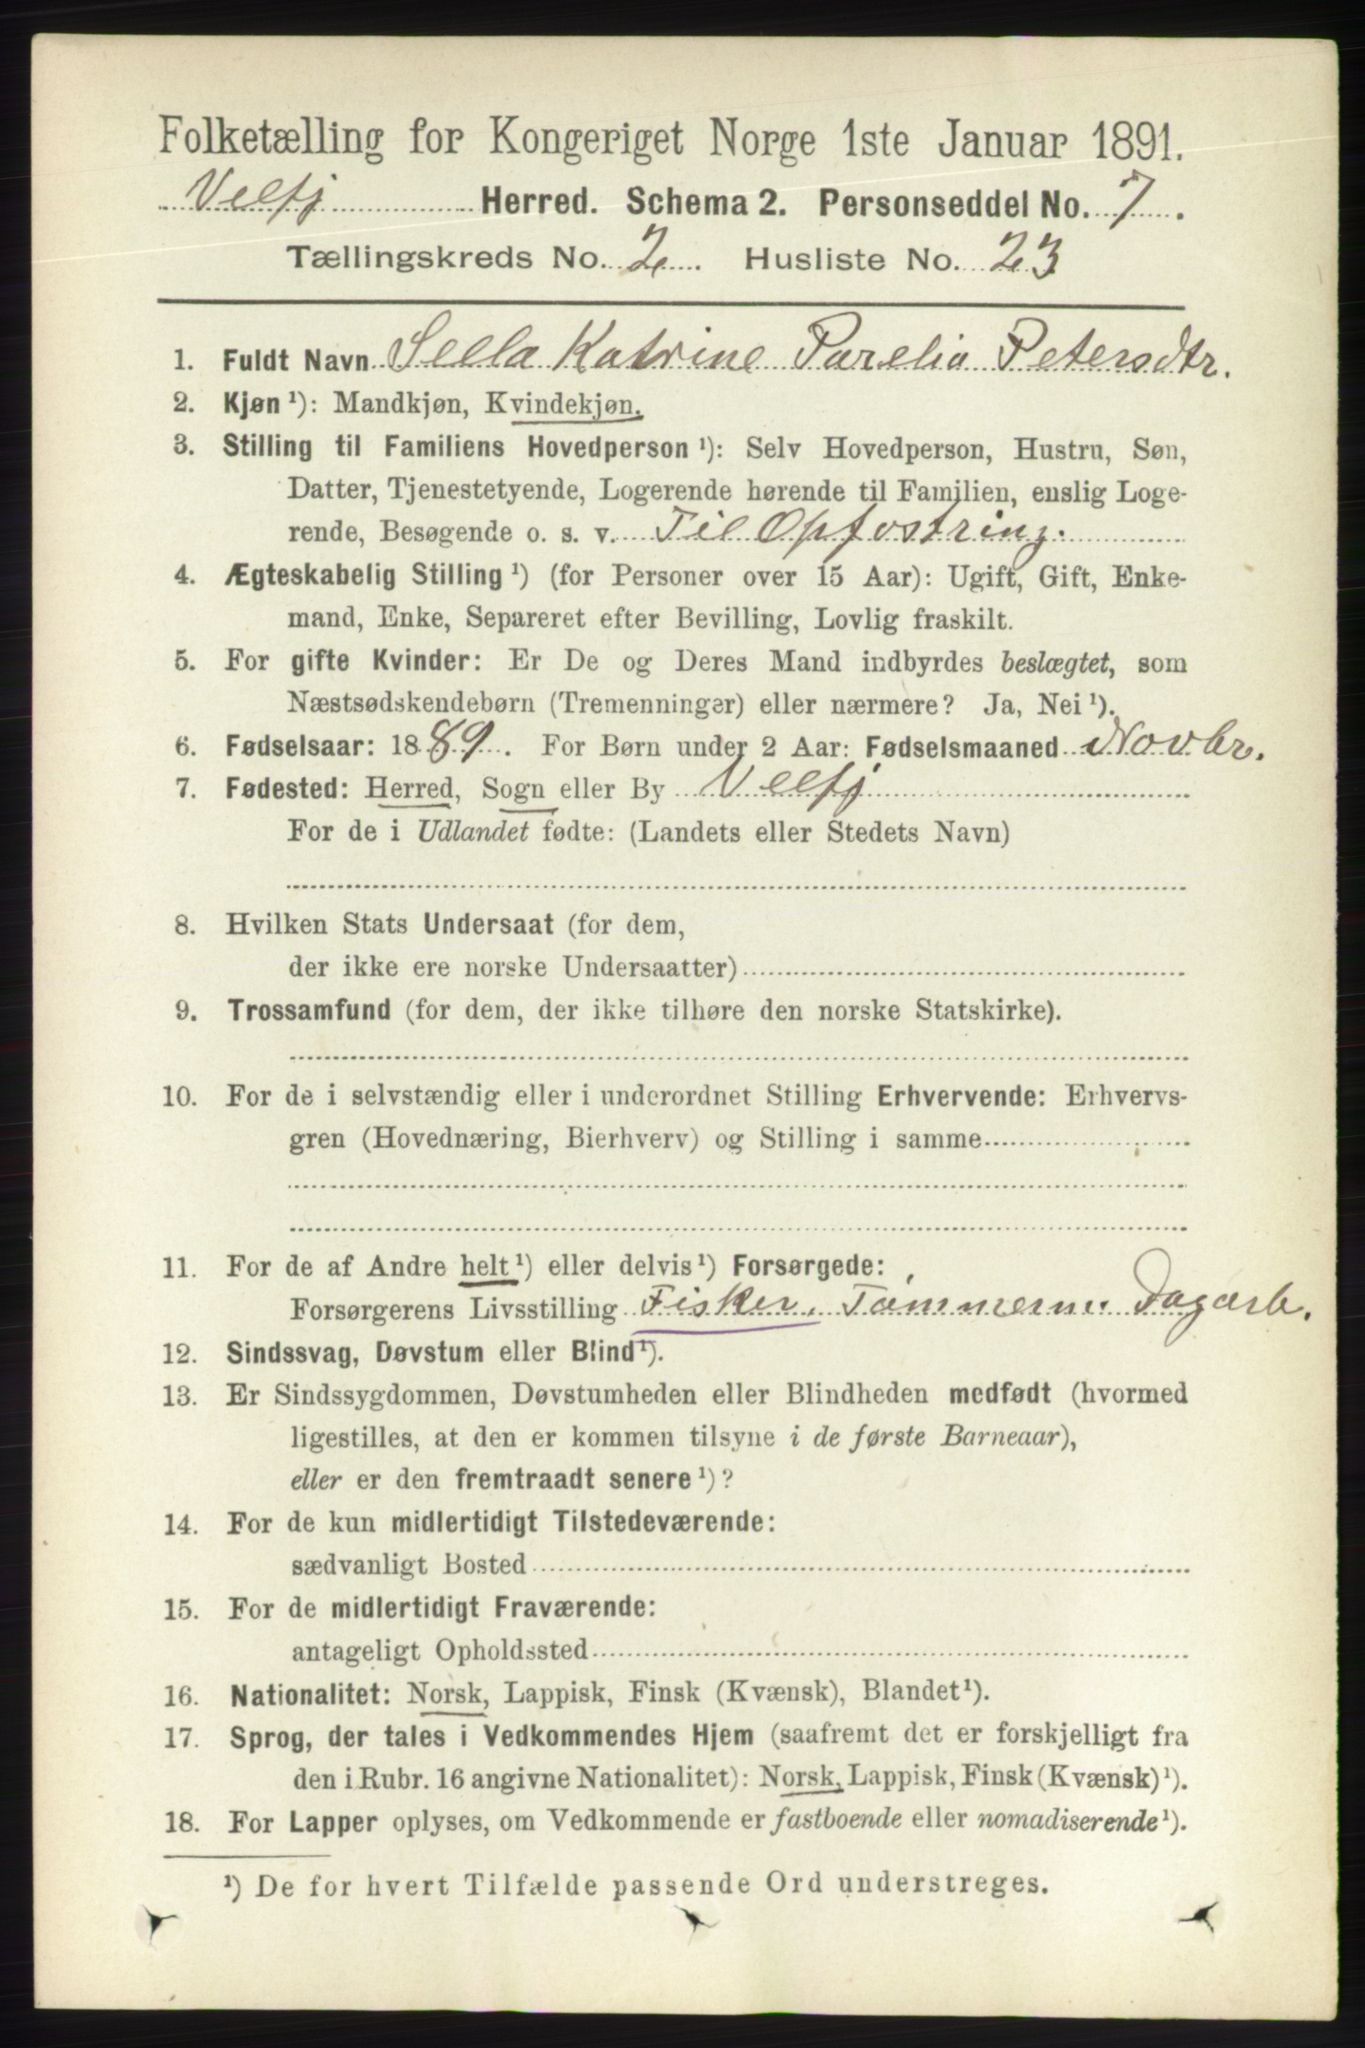 Folketælling for Kongeriget Norge 1ste Januar 1891.
Velfj Herred. Schema 2. Personseddel No. 7.
Tællingskreds No. 2. Husliste No. 23
1. Fuldt Navn Sella Katrine Parelia Petersdtr.
2. Kjøn ¹): Mandkjøn, Kvindekjøn.
3. Stilling til Familiens Hovedperson ¹): Selv Hovedperson, Hustru, Søn,
Datter, Tjenestetyende, Logerende hørende til Familien, enslig Loge-
rende, Besøgende o. s. v. Til Opfostring.
4. Ægteskabelig Stilling ¹) (for Personer over 15 Aar): Ugift, Gift, Enke-
mand, Enke, Separeret efter Bevilling, Lovlig fraskilt.
5. For gifte Kvinder: Er De og Deres Mand indbyrdes beslægtet, som
Næstsødskendebørn (Tremenninger) eller nærmere? Ja, Nei ¹).
6. Fødselsaar: 1889. For Børn under 2 Aar: Fødselsmaaned Novbr.
7. Fødested: Herred, Sogn eller By Velfj
For de i Udlandet fødte: (Landets eller Stedets Navn)
8. Hvilken Stats Undersaat (for dem,
der ikke ere norske Undersaatter)
9. Trossamfund (for dem, der ikke tilhøre den norske Statskirke).
10. For de i selvstændig eller i underordnet Stilling Erhvervende: Erhvervs-
gren (Hovednæring, Bierhverv) og Stilling i samme
11. For de af Andre helt ¹) eller delvis ¹) Forsørgede:
Forsørgerens Livsstilling Fisker, Tømmerm. Dagarb.
12. Sindssvag, Døvstum eller Blind ¹).
13. Er Sindssygdommen, Døvstumheden eller Blindheden medfødt (hvormed
ligestilles, at den er kommen tilsyne i de første Barneaar),
eller er den fremtraadt senere ¹)?
14. For de kun midlertidigt Tilstedeværende:
sædvanligt Bosted
15. For de midlertidigt Fraværende:
antageligt Opholdssted
16. Nationalitet: Norsk, Lappisk, Finsk (Kvænsk), Blandet ¹).
17. Sprog, der tales i Vedkommendes Hjem (saafremt det er forskjelligt fra
den i Rubr. 16 angivne Nationalitet): Norsk, Lappisk, Finsk (Kvænsk) ¹).
18. For Lapper oplyses, om Vedkommende er fastboende eller nomadiserende ¹).
¹) De for hvert Tilfælde passende Ord understreges.